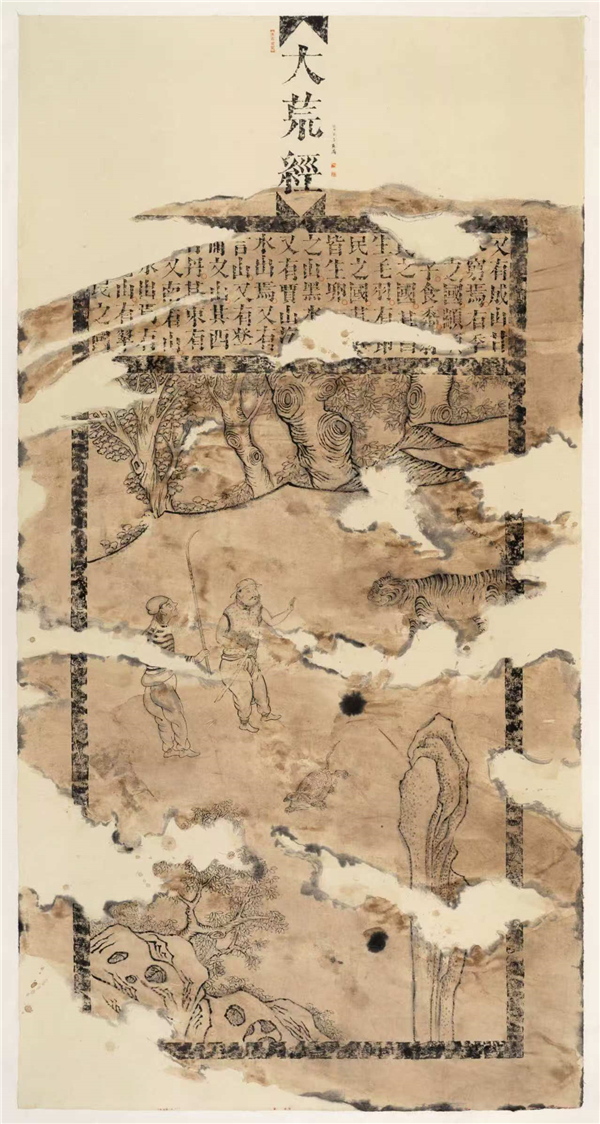 大荒經
又有成山甘
窮焉有季
之國顓
子食黍有
之國其
生毛羽有卵
民之國其
皆生卵
之山黑水
又有賈山
水出焉又有
言山又有登
山其西
丹其東有
又南有山
水出焉有
山有翠
民之國